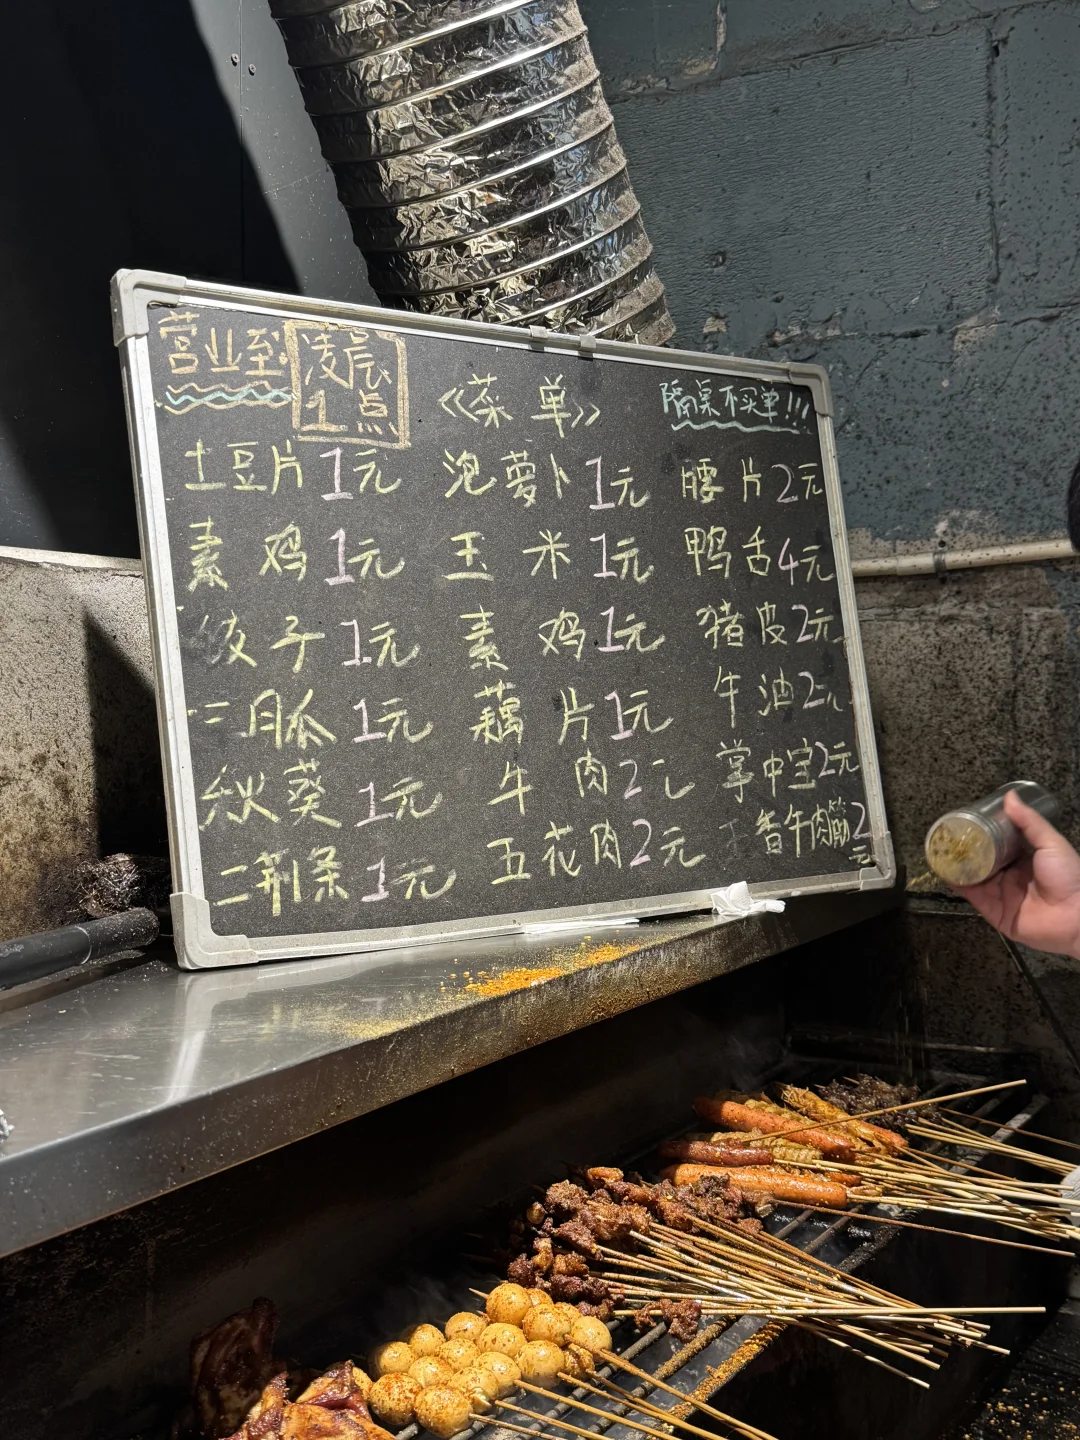 营业至凌晨1点
《菜单》
隔桌不买单!!!
土豆片1元 泡萝卜1元 腰片2元
素鸡1元 玉米1元 鸭舌4元
饺子1元 素鸡1元 猪皮2元
1元 藕片1元 牛油2元
秋葵1元 牛肉2元 掌中宝2元
二荆条1元 五花肉2元 香牛肉筋2元